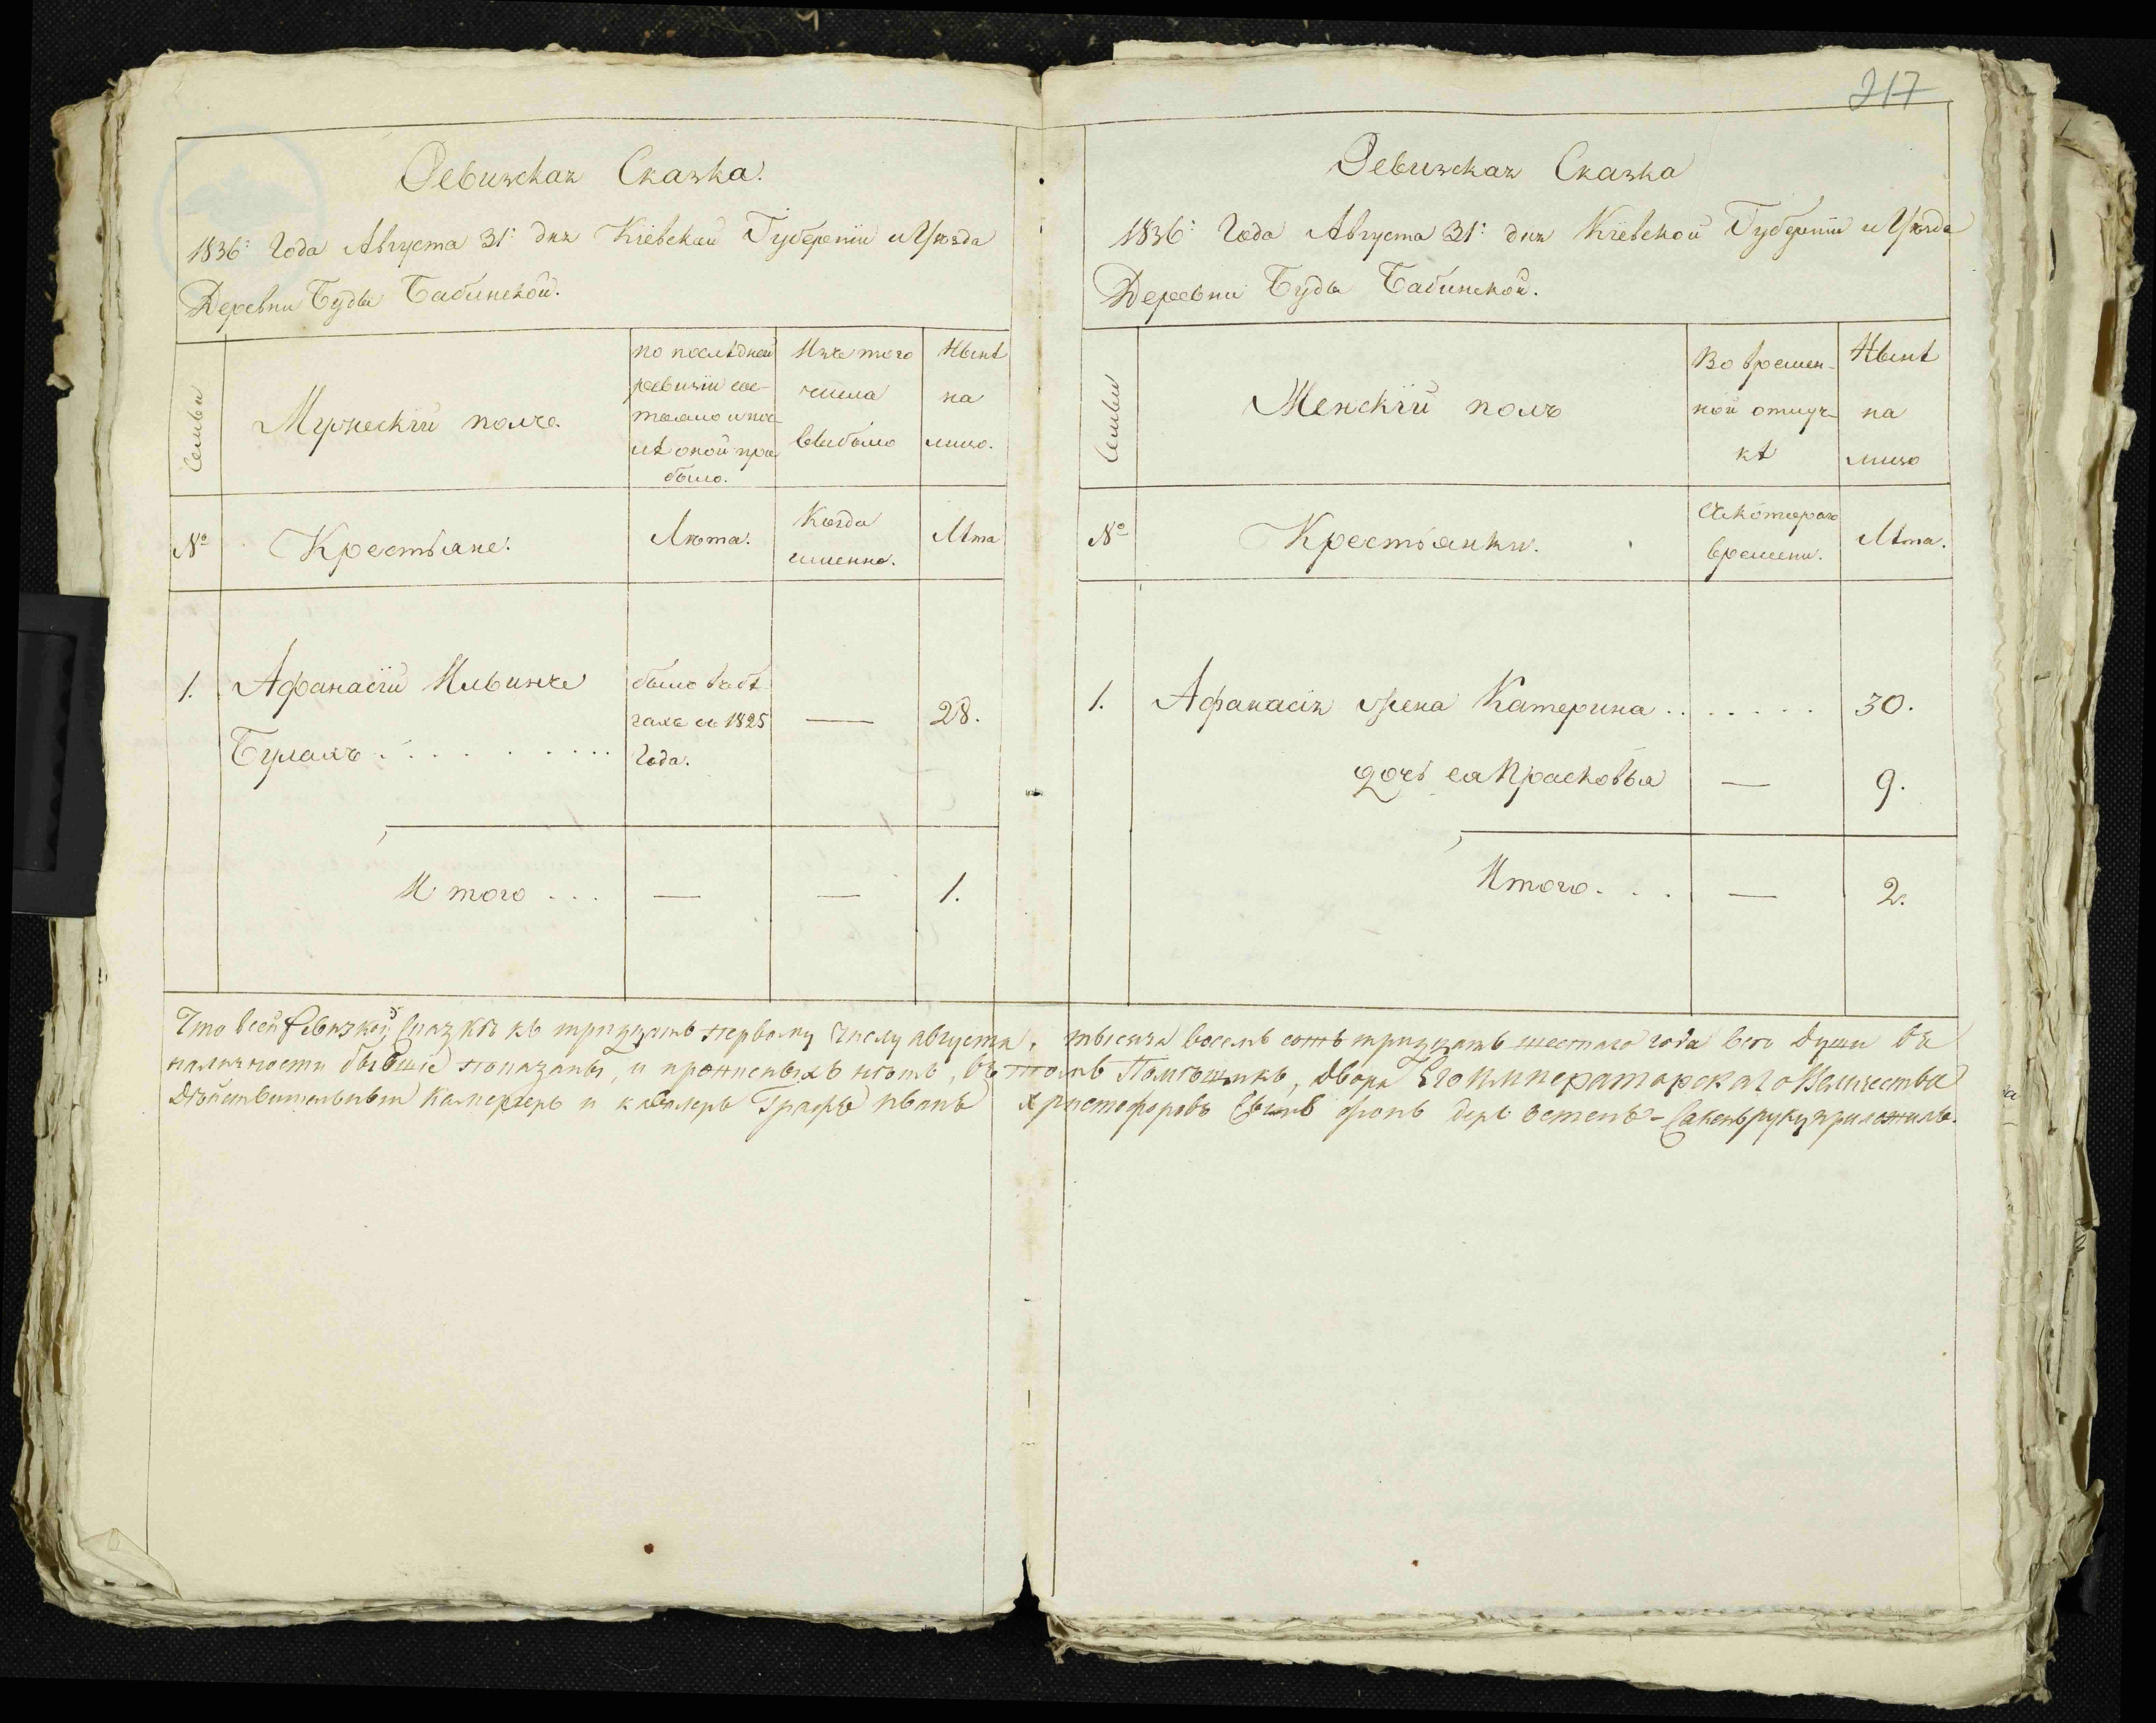 217
Ревизская Сказка.
1836: Года Августа 31: дня Кіевской Губерніи и Уѣзда
Деревни Буды Бабинской.
Семьи
Мужескій полъ
по послѣдней
ревизіи сос-
тояло и пос-
лѣ оной при
было.
Изъ того
числа
выбыло
Нынѣ
на
лицо.
№
Крестьяне.
Лѣта.
Когда
именно.
Лѣта
1.
Афанасій Ильинъ
Булахъ . . . . . . . .
было въ бѣ
гахъ съ 1825
Года.
—
28.
Итого . . .
—
—
1.
Ревизская Сказка
1836: Года Августа 31: дня Кіевской Губерніи и Уѣзда
Деревни Буды Бабинской.
Семьи
Женскій полъ
Во времен-
ной отлуч-
кѣ
Нынѣ
на
лицо
№
Крестьянки.
Съ котораго
времени.
Лѣта.
1.
Афанасія жена Катерина . . . . . . . 30.
дочь ея Прасковья — 9.
Итого . . . — 2.
Что в сей Ревизкой Сказкѣ къ тридцать первому числу августа, тысяча восемь сотъ тридцать шестаго года всѣ души въ
наличности бывшіе показаны, и прописныхъ нѣтъ, въ томъ Помѣщикъ, Двора Его Императорскаго Величества
Дѣйствительный Камергеръ и кавалеръ Графъ Иванъ Христофоровъ Сынъ фонъ деръ Остенъ-Сакенъ руку приложилъ.